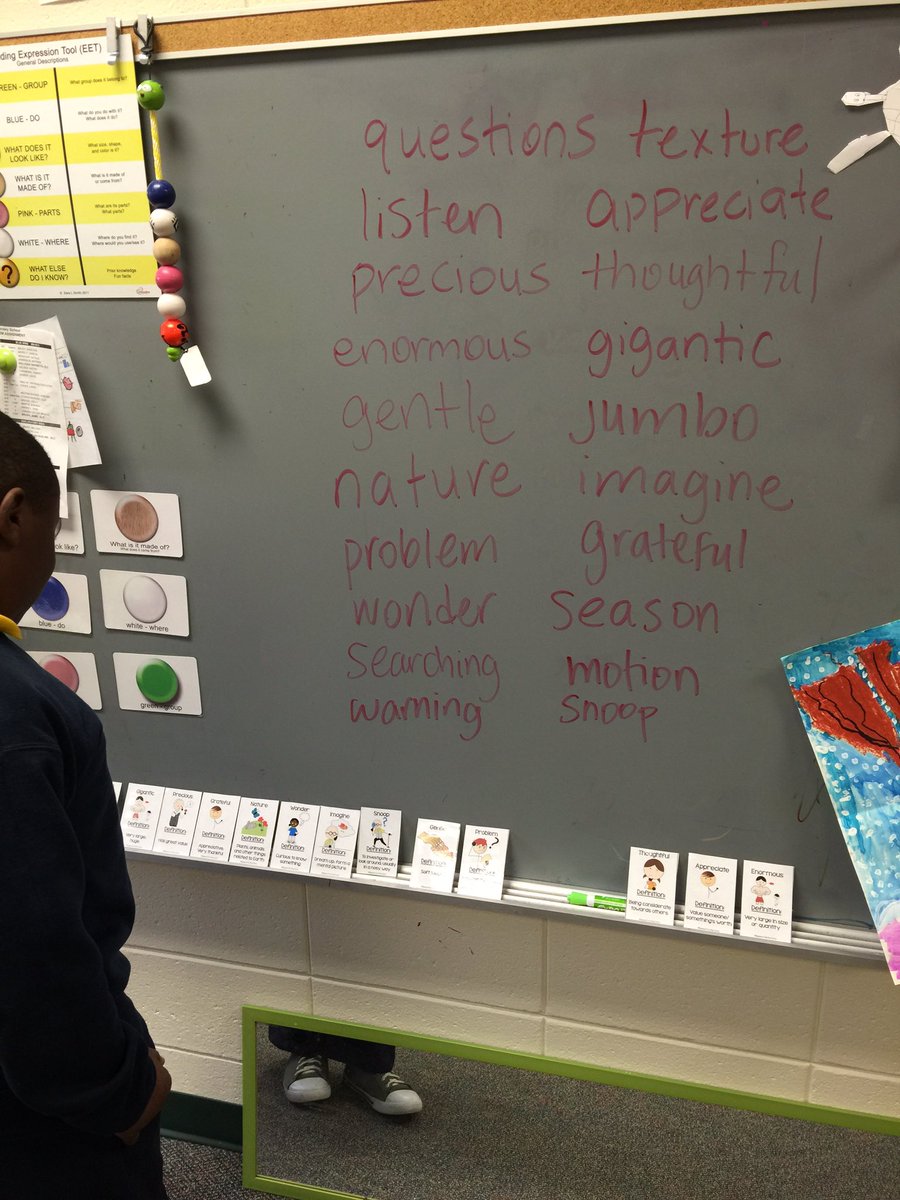 ding Expression Tool (EET)
General Descriptions
REEN - GROUP What group does it belong to?
BLUE - DO What do you do with it? What does it do?
WHAT DOES IT LOOK LIKE? What size, shape, and color is it?
WHAT IS IT MADE OF? What is it made of or come from?
PINK - PARTS What are its parts? What parts?
WHITE - WHERE Where do you find it? Where would you use/see it?
WHAT ELSE DO I KNOW? Prior knowledge Fun facts
questions texture
listen appreciate
precious thoughtful
enormous gigantic
gentle jumbo
nature imagine
problem grateful
wonder season
searching motion
warning snoop
look like?
What is it made of?
What does it come from?
blue - do
white - where
green - group
Gigantic
Definition:
Very large; huge
Precious
Definition:
Has great value
Grateful
Definition:
Appreciative; Very thankful
Nature
Definition:
Plants, animals, and other things related to earth
Wonder
Definition:
Curious to know something
Imagine
Definition:
Dream up, form a mental picture
Snoop
Definition:
To investigate or look around, usually in a nosy way
Problem
Thoughtful
Definition:
Being considerate towards others
Appreciate
Definition:
Value someone/something's worth
Enormous
Definition:
Very large in size or quantity